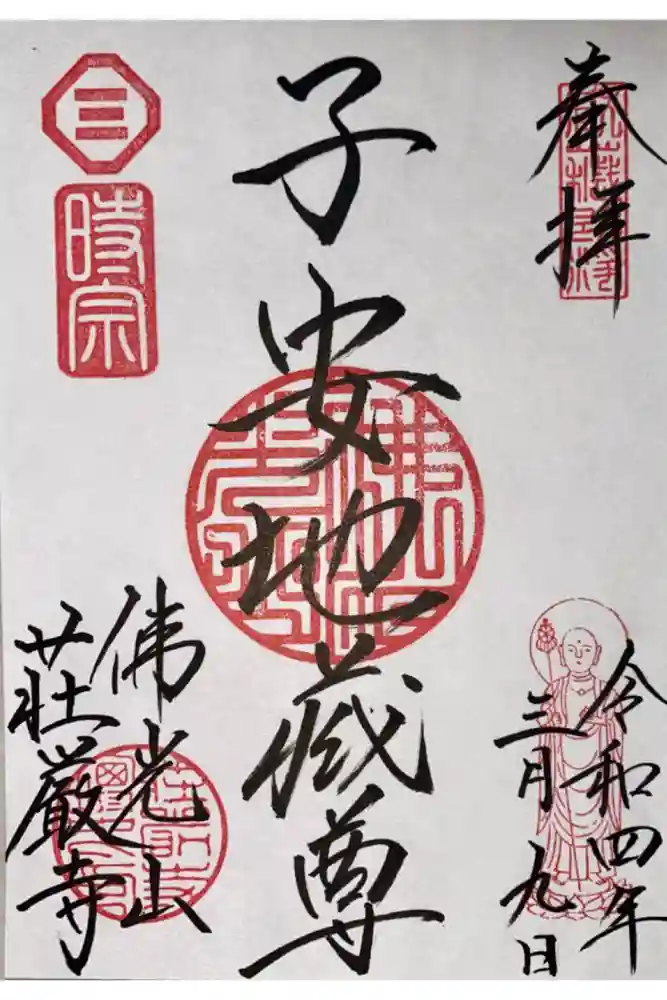 奉拝
令和四年
三月九日
子安地蔵尊
三
時宗
佛光山
荘厳寺